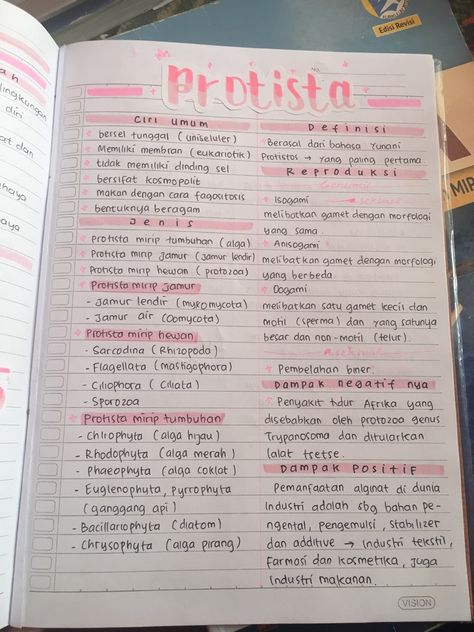 Edisi Revisi
MIP
an
lingkungan
diri
at dan
haya
aya
NO.
Protista
Ciri umum
* bersel tunggal (uniseluler)
* Memiliki membran (eukariotik)
* tidak memiliki dinding sel
* bersifat kosmopolit
* makan dengan cara fagositosis
* bentuknya beragam
Jenis
* Protista mirip tumbuhan (alga)
* Protista mirip jamur (jamur lendir)
* Protista mirip hewan (protozoa)
* Protista mirip jamur
- Jamur lendir (myxomycota)
- Jamur air (Oomycota)
* Protista mirip hewan
- Sarcodina (Rhizopoda)
- Flagellata (mastigophora)
- Ciliophora (Ciliata)
- Sporozoa
* Protista mirip tumbuhan
- Chlrophyta (alga hijau)
- Rhodophyta (alga merah)
- Phaeophyta (alga coklat)
- Euglenophyta, pyrrophyta
(ganggang api)
- Bacillariophyta (diatom)
- Chrysophyta (alga pirang)
Definisi
* Berasal dari bahasa Yunani
Protistos → yang paling pertama.
Reproduksi
* Isogami
seksual
melibatkan gamet dengan morfologi
yang sama.
* Anisogami
melibatkan gamet dengan morfologi
yang berbeda.
* Oogami
melibatkan satu gamet kecil dan
motil (sperma) dan yang satunya
besar dan non-motil (telur).
aseksual
* Pembelahan biner.
Dampak negatif nya
Penyakit tidur Afrika yang
disebabkan oleh protozoa genus
Trypanosoma dan ditularkan
lalat tsetse.
Dampak Positif
Pemanfaatan alginat di dunia
Industri adalah sbg bahan pe-
ngental, pengemulsi, stabilizer
dan additive → Industri tekstil,
farmasi dan kosmetika, juga
Industri makanan.
VISION